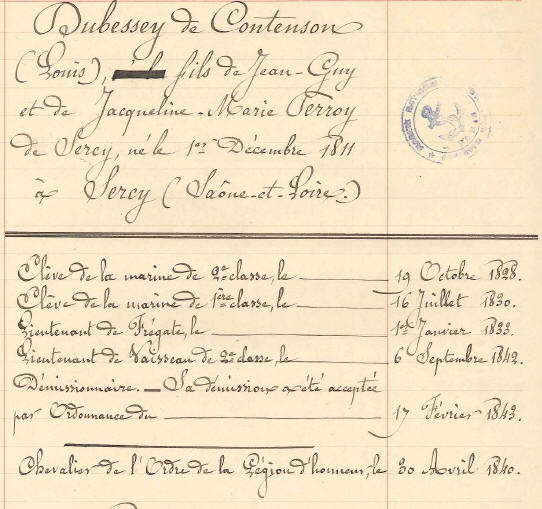 Dubessey de Contenson
(Louis), fils de Jean-Guy
et de Jacqueline-Marie Perroy
de Sercy, né le 1er Décembre 1811
à Sercy (Saône-et-Loire.)
Elève de la marine de 2e classe, le 19 Octobre 1828.
Elève de la marine de 1ère classe, le 16 Juillet 1830.
Lieutenant de Frégate, le 1er Janvier 1833.
Lieutenant de Vaisseau de 2e classe, le 6 Septembre 1842.
Démissionnaire. — Sa démission a été acceptée
par Ordonnance du 17 Février 1843.
Chevalier de l'Ordre de la Légion d'honneur, le 30 Avril 1840.